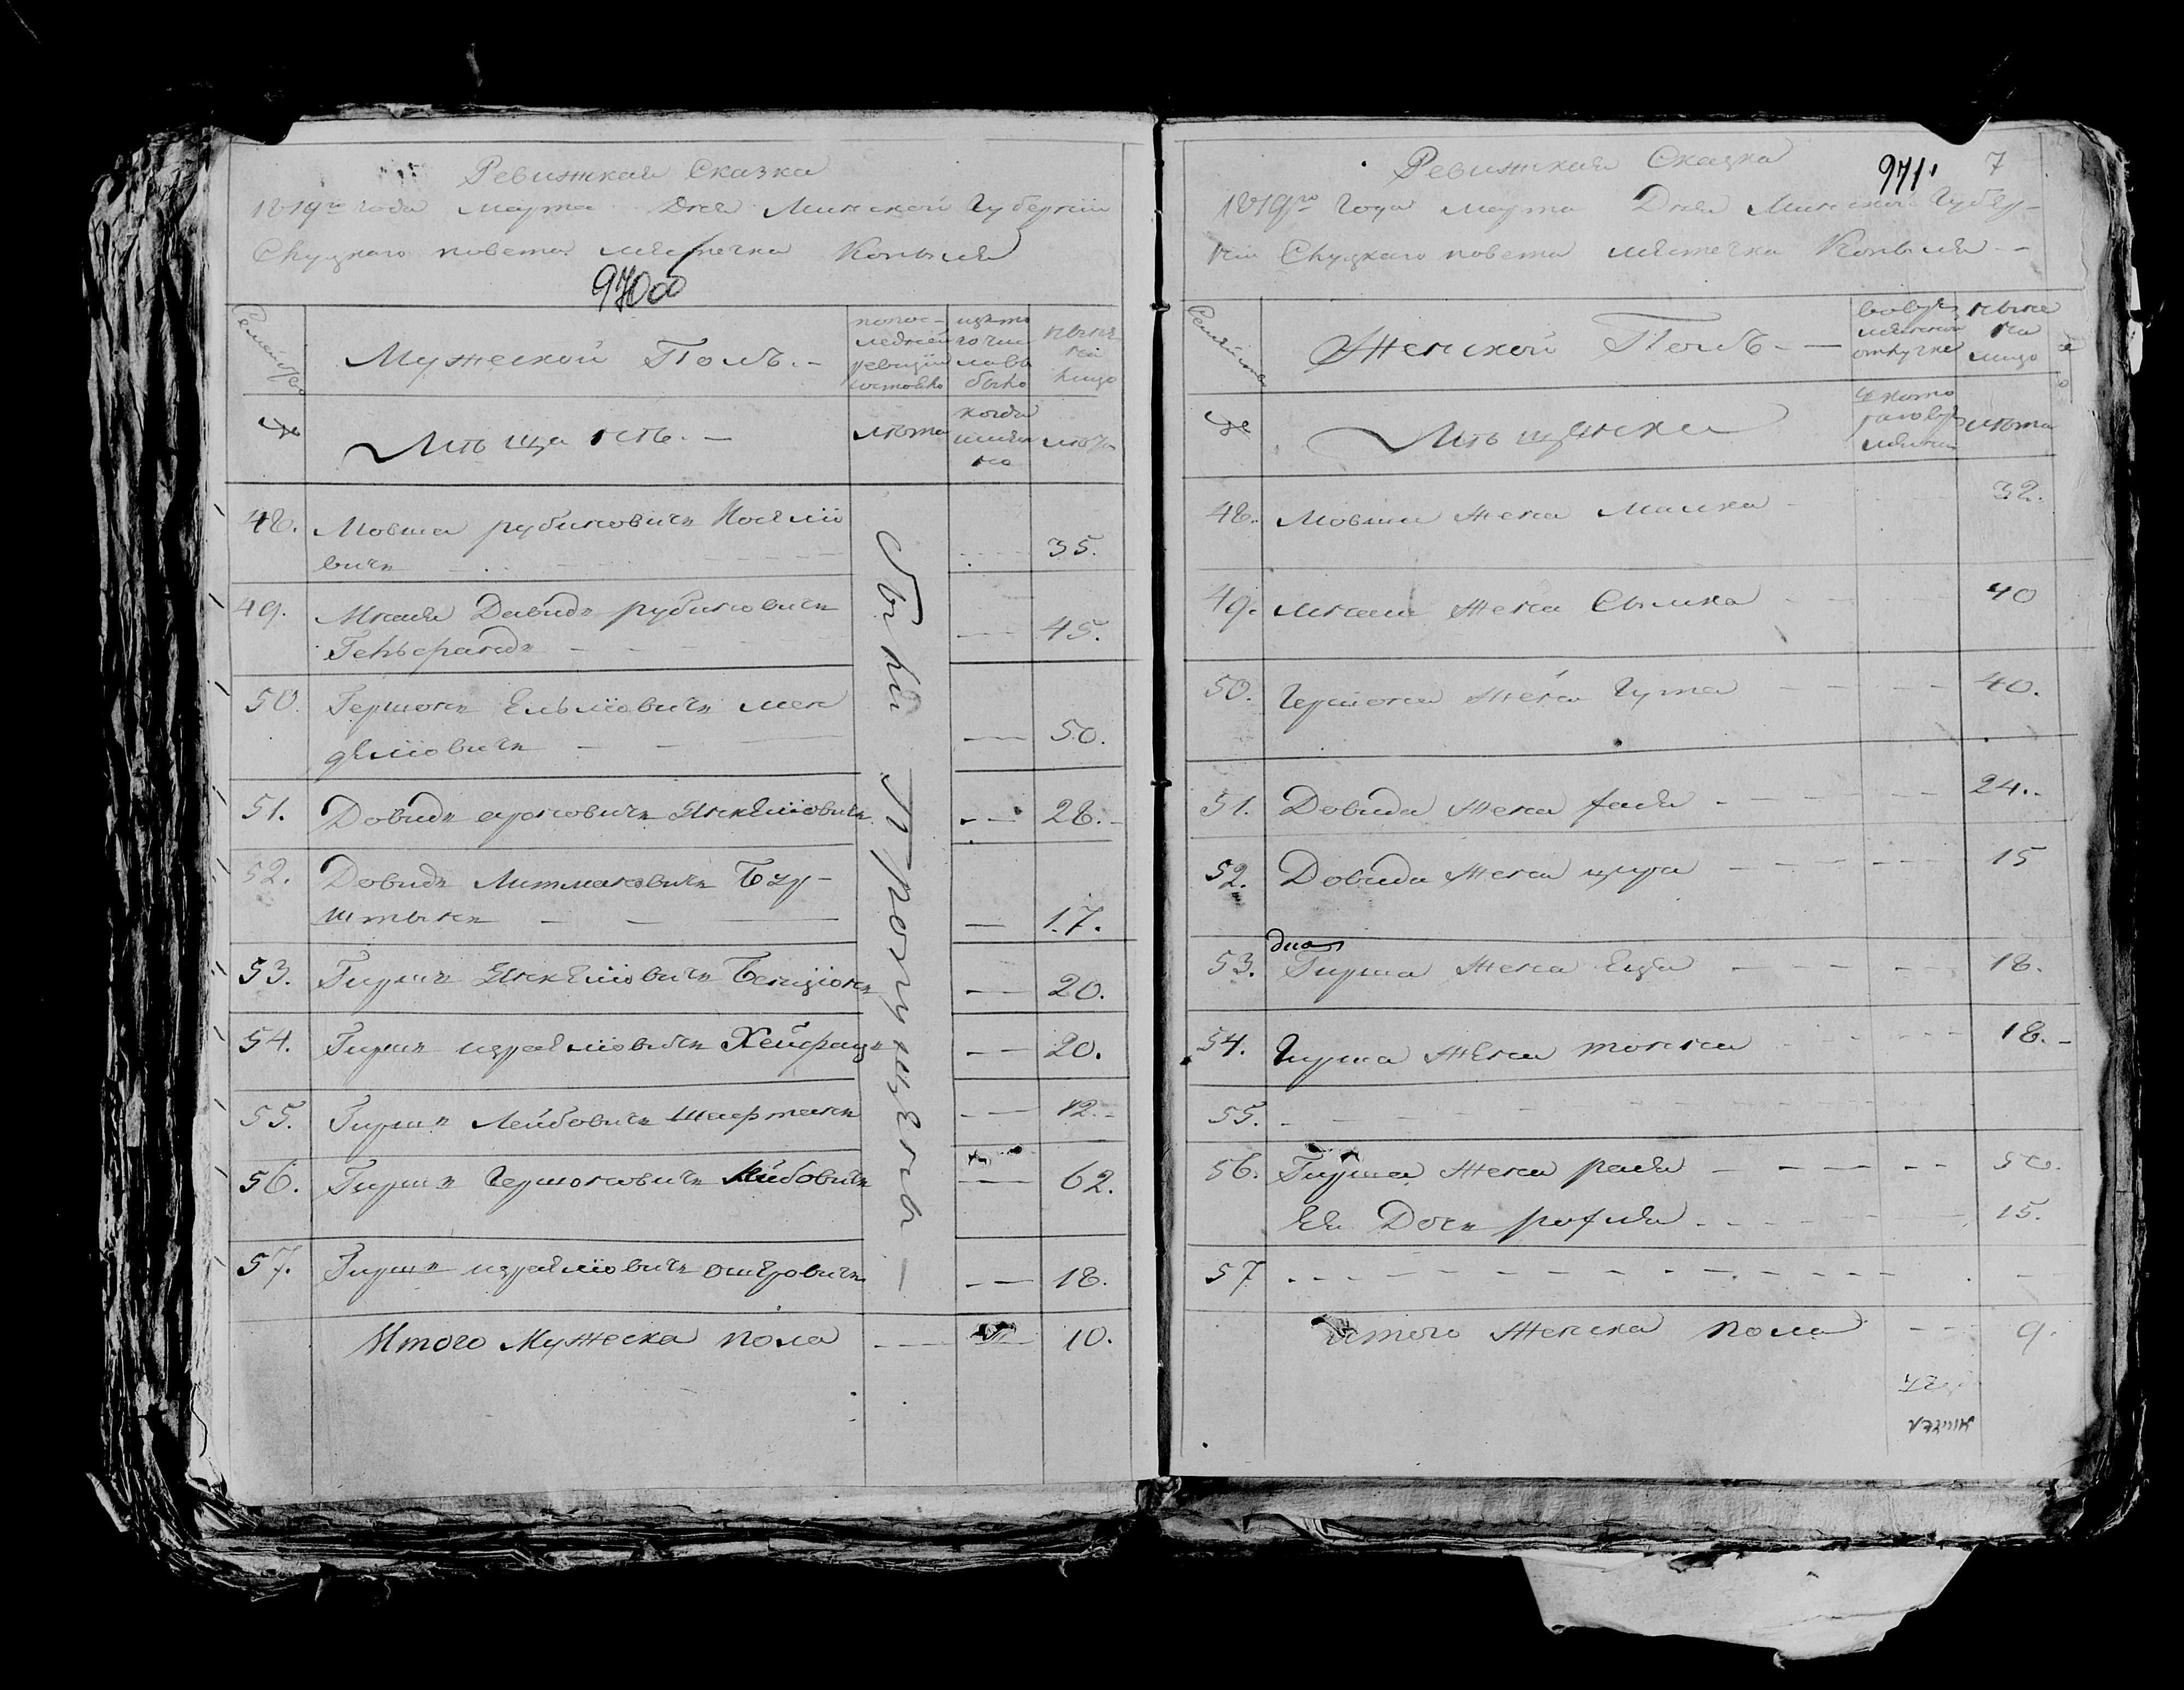 Ревижкая Сказка
1819го года марта Дня Минской Губернии
Слуцкаго повета местечка Копыля
970об
Семейство
Мужеской Полъ. -
попос-
ледней
ревизии
состояло
изъ то
го чис
ла вы
было
ныне
на
лицо
№
Мѣщанѣ. -
лѣта
когда
имян
но
лѣта
48. Мовша рубиновичъ Иосели
вичъ 35.
49. Мкаля Давидъ рубиновичъ
Гельфандъ 45.
50. Гершонъ Ельиовичъ мен
делиовичъ 50.
51. Довидъ ароновичъ Янкелиовичъ 28.
52. Довидъ Литмановичъ Бур-
штынъ 17.
53. Гиршъ Янкелиовичъ Бенционъ 20.
54. Гиршъ израелиовичъ Хейфацъ 20.
55. Гиршъ Лейбовичъ Шафтанъ 12.
56. Гиршъ Гершоновичъ Лейбовичъ 62.
57. Гиршъ израелиовичъ ошеровичъ 18.
Были Пропущены -
Итого Мужеска пола 10.
971. 7
Ревижкая Сказка
1819го Года марта Дня Минской Губер-
нии Слуцкаго повета местечка Копыля - -
Семейство
Женской Полъ - -
вовре
менной
отлучке
ныне
на
лицо
№
Мѣщанки
с кото
раго вре
мени
лѣта
48. Мовши жена Малка 32.
49. Мкали жена Сымка 40
50. Гершона жена Гута 40.
51. Довида жена фаля 24.
52. Довида жена цира 15
53. Гирша жена Ецля 18.
54. Гирша жена тонна 18.
55.
56. Гирша жена раля 50.
Ея Дочь рофля 15.
57
Итого женска пола 9.